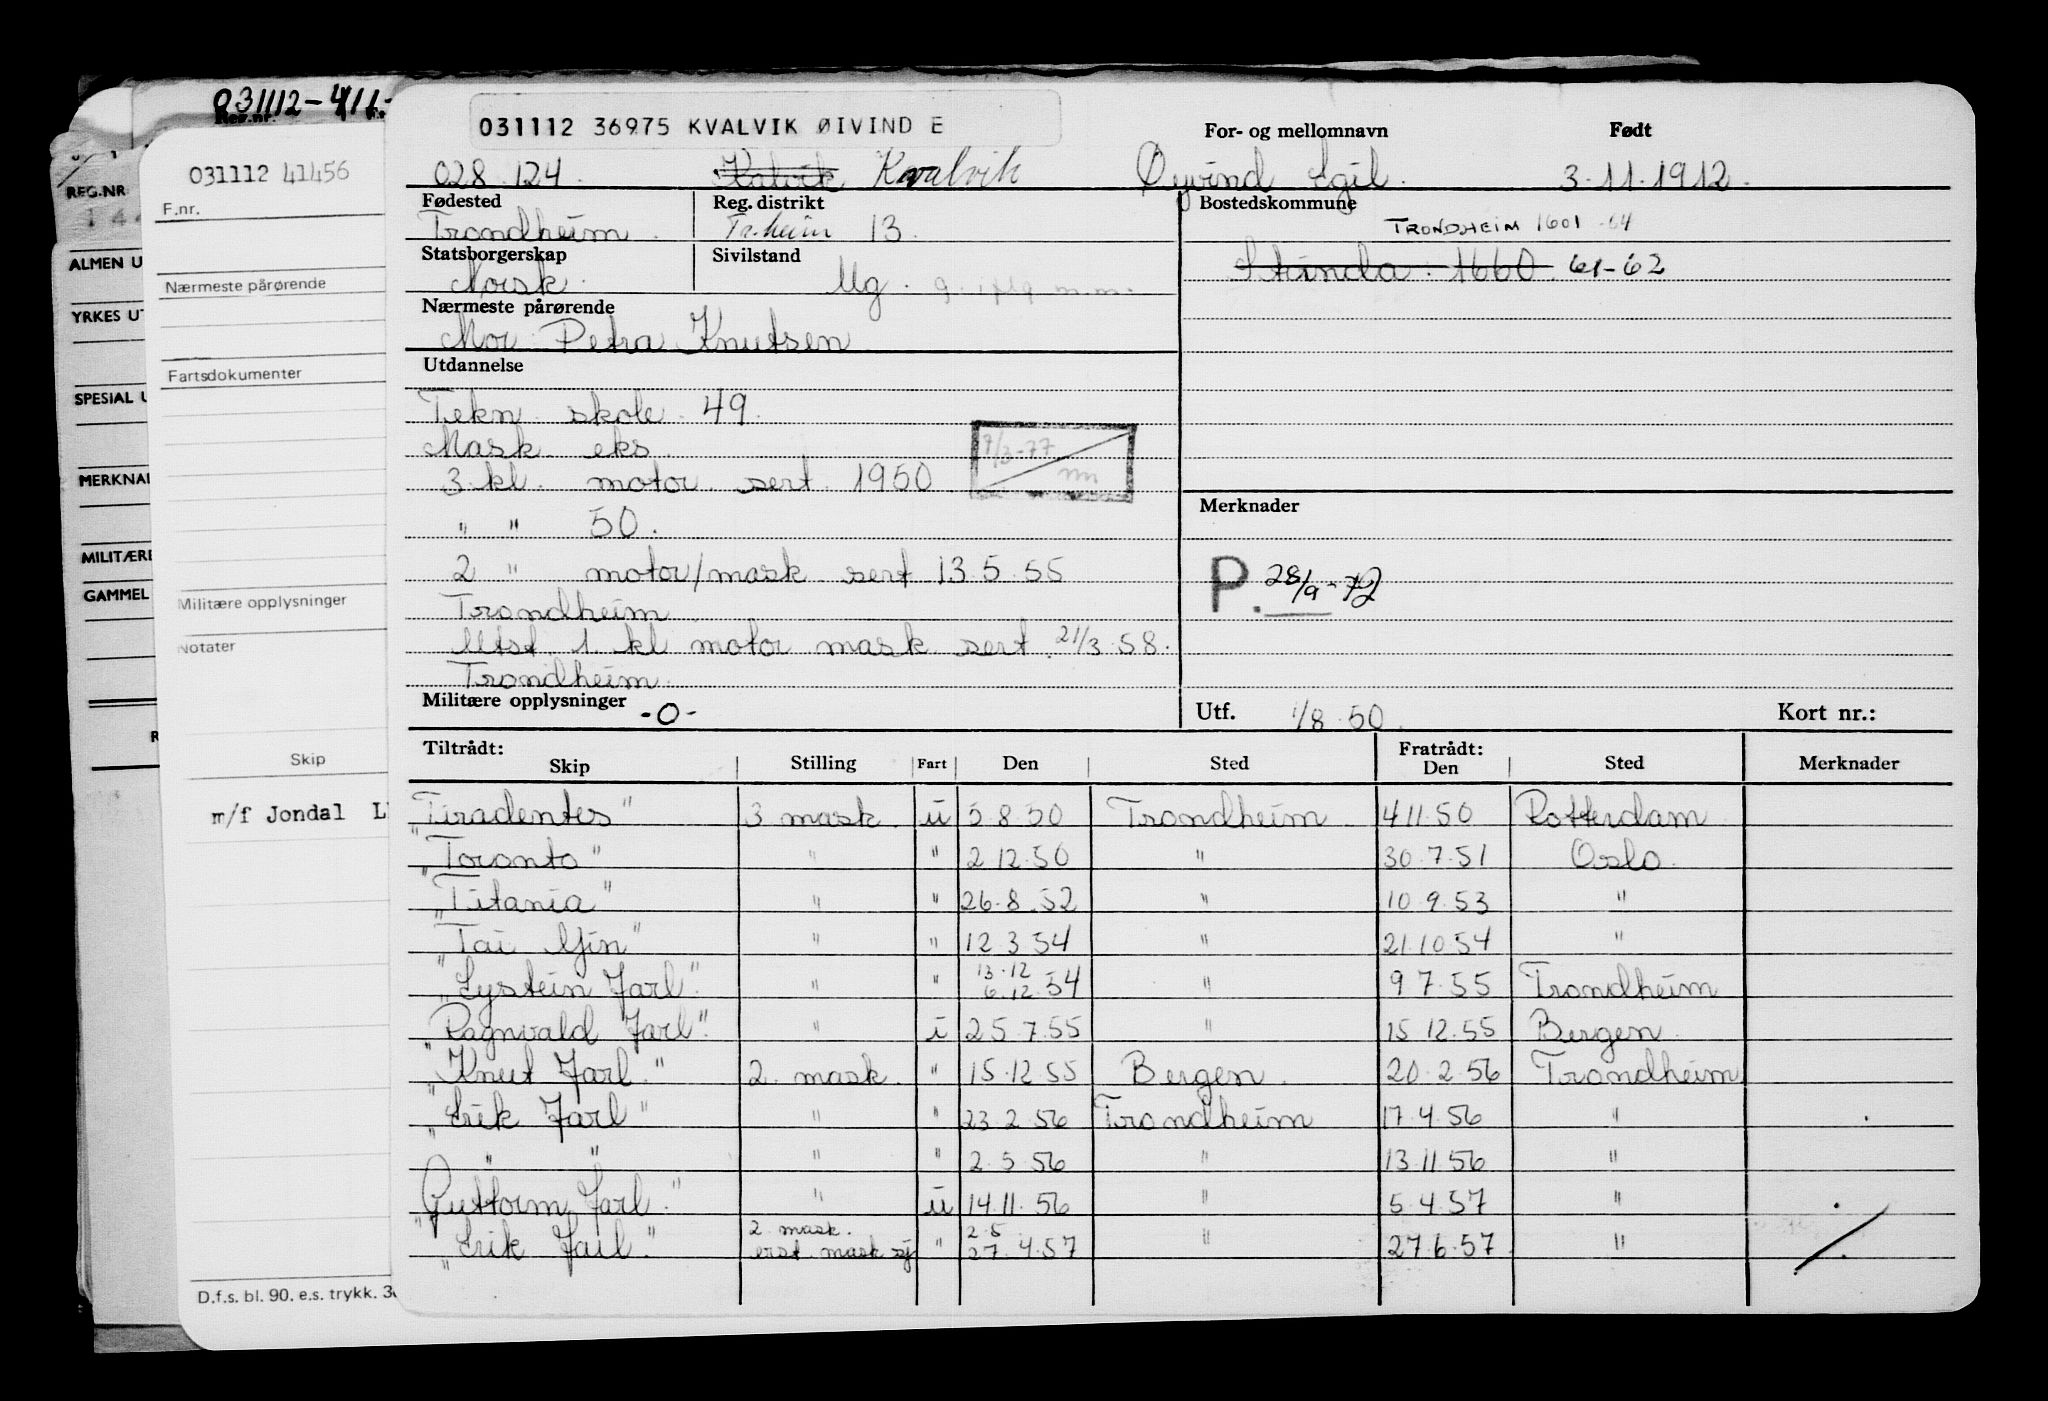 031112-411-
Reg.nr.
REG.NR
144
ALMEN U
YRKES UT
SPESIAL U
MERKNAD
MILITÆRE
GAMMEL
R
031112 41456
F.nr.
Nærmeste pårørende
Fartsdokumenter
Militære opplysninger
Notater
Skip
m/f Jondal L
D.f.s. bl. 90. e.s. trykk. 30
031112 36975 KVALVIK ØIVIND E
For- og mellomnavn Født
028.124. Kalvik Kvalvik Øyvind Egil. 3.11.1912.
Fødested Reg. distrikt Bostedskommune
Trondheim. Tr.heim 13. TRONDHEIM 1601 -64
Statsborgerskap Sivilstand
Norsk. Ug. Strinda. 1660. 61-62
Nærmeste pårørende
Mor Petra Knutsen
Utdannelse
Tekn. skole. 49.
Mask. eks.
7/3-77
3. kl. motor. sert. 1950
Merknader
" " 50.
2 " motor/mask. sert 13.5.55
P. 28/9-72
Trondheim
Utst. 1. kl motor mask sert. 21/3.58.
Trondheim.
Militære opplysninger -0- Utf. 1/8.50. Kort nr.:
Tiltrådt: Fratrådt:
Skip Stilling Fart Den Sted Den Sted Merknader
Tiradentes" 3 mask. u 5.8.50 Trondheim 4.11.50 Rotterdam
"Toronto" " " 2.12.50 " 30.7.51 Oslo.
"Titania" " " 26.8.52 " 10.9.53 "
"Tai Yin" " " 12.3.54 " 21.10.54 "
"Eystein Jarl" " " 13.12 6.12.54 " 9.7.55 Trondheim
"Ragnvald Jarl" " i 25.7.55 " 15.12.55 Bergen.
"Knut Jarl." 2. mask. " 15.12.55 Bergen. 20.2.56 Trondheim
"Erik Jarl" " " 23.2.56 Trondheim 17.4.56 "
" " " " 2.5.56 " 13.11.56 "
Guttorm Jarl." " u 14.11.56 " 5.4.57 "
"Erik Jarl." 2. mask. erst. mask sj " 2.5 27.4.57 " 27.6.57 "